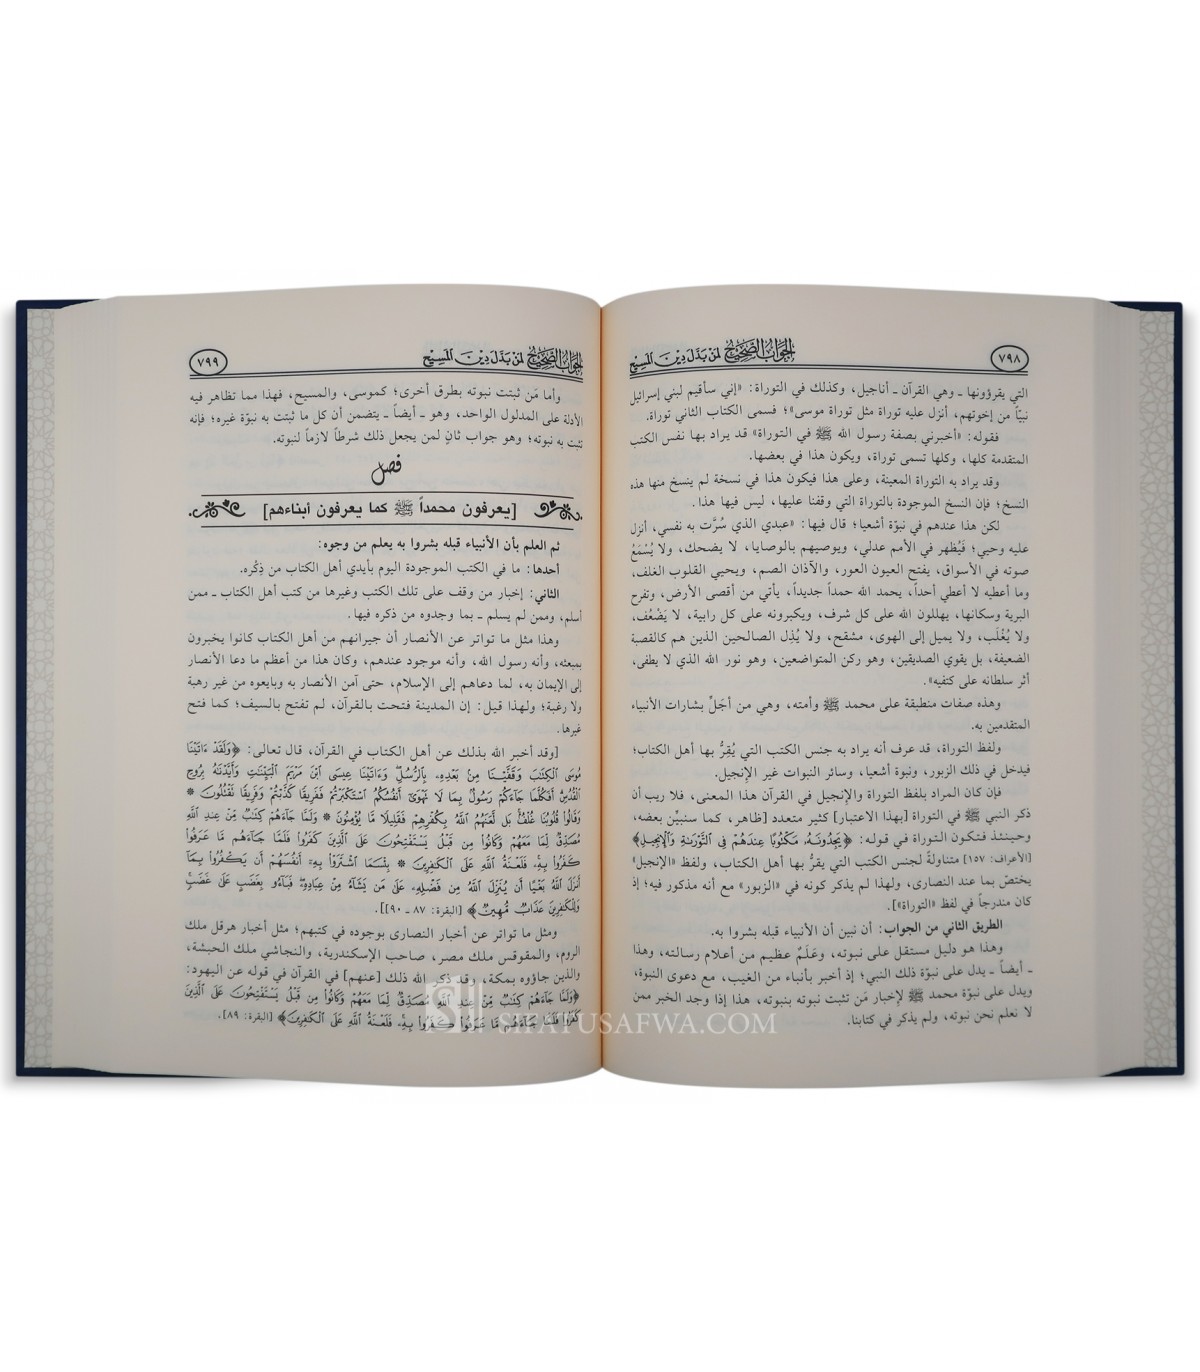 ٧٩٨
الجواب الصحيح لمن بدل دين المسيح
التي يقرؤونها ـ وهي القرآن ـ أناجيل، وكذلك في التوراة: «إني سأقيم لبني إسرائيل
نبيًّا من إخوتهم، أنزل عليه توراة مثل توراة موسى»؛ فسمى الكتاب الثاني توراة.
فقوله: «أخبرني بصفة رسول الله ﷺ في التوراة» قد يراد بها نفس الكتب
المتقدمة كلها، وكلها تسمى توراة، ويكون هذا في بعضها.
وقد يراد به التوراة المعينة، وعلى هذا فيكون هذا في نسخة لم ينسخ منها هذه
النسخ؛ فإن النسخ الموجودة بالتوراة التي وقفنا عليها، ليس فيها هذا.
لكن هذا عندهم في نبوّة أشعيا؛ قال فيها: «عبدي الذي سُرَّت به نفسي، أنزل
عليه وحيي؛ فيُظهر في الأمم عدلي، ويوصيهم بالوصايا، لا يضحك، ولا يُسْمَعُ
صوته في الأسواق، يفتح العيون العور، والآذان الصم، ويحيي القلوب الغلف،
وما أعطيه لا أعطي أحداً، يحمد الله حمداً جديداً، يأتي من أقصى الأرض، وتفرح
البرية وسكانها، يهللون الله على كل شرف، ويكبرونه على كل رابية، لا يَضْعُف،
ولا يُغْلَب، ولا يميل إلى الهوى، مشقح، ولا يُذِل الصالحين الذين هم كالقصبة
الضعيفة، بل يقوي الصديقين، وهو ركن المتواضعين، وهو نور الله الذي لا يطفى،
أثر سلطانه على كتفيه».
وهذه صفات منطبقة على محمد ﷺ وأمته، وهي من أجَلِّ بشارات الأنبياء
المتقدمين به.
ولفظ التوراة، قد عرف أنه يراد به جنس الكتب التي يُقِرُّ بها أهل الكتاب؛
فيدخل في ذلك الزبور، ونبوة أشعيا، وسائر النبوات غير الإنجيل.
فإن كان المراد بلفظ التوراة والإنجيل في القرآن هذا المعنى، فلا ريب أن
ذكر النبي ﷺ في التوراة [بهذا الاعتبار] كثير متعدد [ظاهر، كما سنبيِّن بعضه،
وحينئذ فتكون التوراة في قوله: ﴿يَجِدُونَهُۥ مَكْتُوبًا عِندَهُمْ فِي التَّوْرَىٰةِ وَالْإِنجِيلِ﴾
[الأعراف: ١٥٧] متناولةً لجنس الكتب التي يقرُّ بها أهل الكتاب، ولفظ «الإنجيل»
يختصّ بما عند النصارى، ولهذا لم يذكر كونه في «الزبور» مع أنه مذكور فيه؛ إذ
كان مندرجاً في لفظ «التوراة»].
الطريق الثاني من الجواب: أن نبين أن الأنبياء قبله بشروا به.
وهذا هو دليل مستقل على نبوته، وعَلَمٌ عظيم من أعلام رسالته، وهذا
ـ أيضاً ـ يدل على نبوّة ذلك النبي؛ إذ أخبر بأنباء من الغيب، مع دعوى النبوة،
ويدل على نبوّة محمد ﷺ لإخبار مَن تثبت نبوته بنبوته، هذا إذا وجد الخبر ممن
لا نعلم نحن نبوته، ولم يذكر في كتابنا.
الجواب الصحيح لمن بدل دين المسيح
٧٩٩
وأما مَن ثبتت نبوته بطرق أخرى؛ كموسى، والمسيح، فهذا مما تظاهر فيه
الأدلة على المدلول الواحد، وهو ـ أيضاً ـ يتضمن أن كل ما ثبتت به نبوّة غيره؛ فإنه
تثبت به نبوته؛ وهو جواب ثانٍ لمن يجعل ذلك شرطاً لازماً لنبوته.
فصل
[يعرفون محمداً ﷺ كما يعرفون أبناءهم]
ثم العلم بأن الأنبياء قبله بشروا به يعلم من وجوه:
أحدها: ما في الكتب الموجودة اليوم بأيدي أهل الكتاب من ذِكْره.
الثاني: إخبار من وقف على تلك الكتب وغيرها من كتب أهل الكتاب ـ ممن
أسلم، وممن لم يسلم ـ بما وجدوه من ذكره فيها.
وهذا مثل ما تواتر عن الأنصار أن جيرانهم من أهل الكتاب كانوا يخبرون
بمبعثه، وأنه رسول الله، وأنه موجود عندهم، وكان هذا من أعظم ما دعا الأنصار
إلى الإيمان به، لما دعاهم إلى الإسلام، حتى آمن الأنصار به وبايعوه من غير رهبة
ولا رغبة؛ ولهذا قيل: إن المدينة فتحت بالقرآن، لم تفتح بالسيف؛ كما فتح
غيرها.
[وقد أخبر الله بذلك عن أهل الكتاب في القرآن، قال تعالى: ﴿وَلَقَدْ ءَاتَيْنَا
مُوسَى الْكِتَٰبَ وَقَفَّيْنَا مِنۢ بَعْدِهِۦ بِالرُّسُلِ ۖ وَءَاتَيْنَا عِيسَى ابْنَ مَرْيَمَ الْبَيِّنَٰتِ وَأَيَّدْنَٰهُ بِرُوحِ
الْقُدُسِ ۗ أَفَكُلَّمَا جَآءَكُمْ رَسُولٌۢ بِمَا لَا تَهْوَىٰٓ أَنفُسُكُمُ اسْتَكْبَرْتُمْ فَفَرِيقًا كَذَّبْتُمْ وَفَرِيقًا تَقْتُلُونَ *
وَقَالُوا۟ قُلُوبُنَا غُلْفٌۢ ۚ بَل لَّعَنَهُمُ اللَّهُ بِكُفْرِهِمْ فَقَلِيلًا مَّا يُؤْمِنُونَ * وَلَمَّا جَآءَهُمْ كِتَٰبٌ مِّنْ عِندِ اللَّهِ
مُصَدِّقٌ لِّمَا مَعَهُمْ وَكَانُوا۟ مِن قَبْلُ يَسْتَفْتِحُونَ عَلَى الَّذِينَ كَفَرُوا۟ فَلَمَّا جَآءَهُم مَّا عَرَفُوا۟
كَفَرُوا۟ بِهِۦ ۚ فَلَعْنَةُ اللَّهِ عَلَى الْكَٰفِرِينَ * بِئْسَمَا اشْتَرَوْا۟ بِهِۦٓ أَنفُسَهُمْ أَن يَكْفُرُوا۟ بِمَآ
أَنزَلَ اللَّهُ بَغْيًا أَن يُنَزِّلَ اللَّهُ مِن فَضْلِهِۦ عَلَىٰ مَن يَشَآءُ مِنْ عِبَادِهِۦ ۖ فَبَآءُو بِغَضَبٍ عَلَىٰ غَضَبٍ ۚ
وَلِلْكَٰفِرِينَ عَذَابٌ مُّهِينٌ﴾ [البقرة: ٨٧ ـ ٩٠]].
ومثل ما تواتر عن أخبار النصارى بوجوده في كتبهم؛ مثل أخبار هرقل ملك
الروم، والمقوقس ملك مصر، صاحب الإسكندرية، والنجاشي ملك الحبشة،
والذين جاؤوه بمكة، وقد ذكر الله ذلك [عنهم] في القرآن في قوله عن اليهود:
﴿وَلَمَّا جَآءَهُمْ كِتَٰبٌ مِّنْ عِندِ اللَّهِ مُصَدِّقٌ لِّمَا مَعَهُمْ وَكَانُوا۟ مِن قَبْلُ يَسْتَفْتِحُونَ عَلَى الَّذِينَ
كَفَرُوا۟ فَلَمَّا جَآءَهُم مَّا عَرَفُوا۟ كَفَرُوا۟ بِهِۦ ۚ فَلَعْنَةُ اللَّهِ عَلَى الْكَٰفِرِينَ﴾ [البقرة: ٨٩].
SIFATUSAFWA.COM